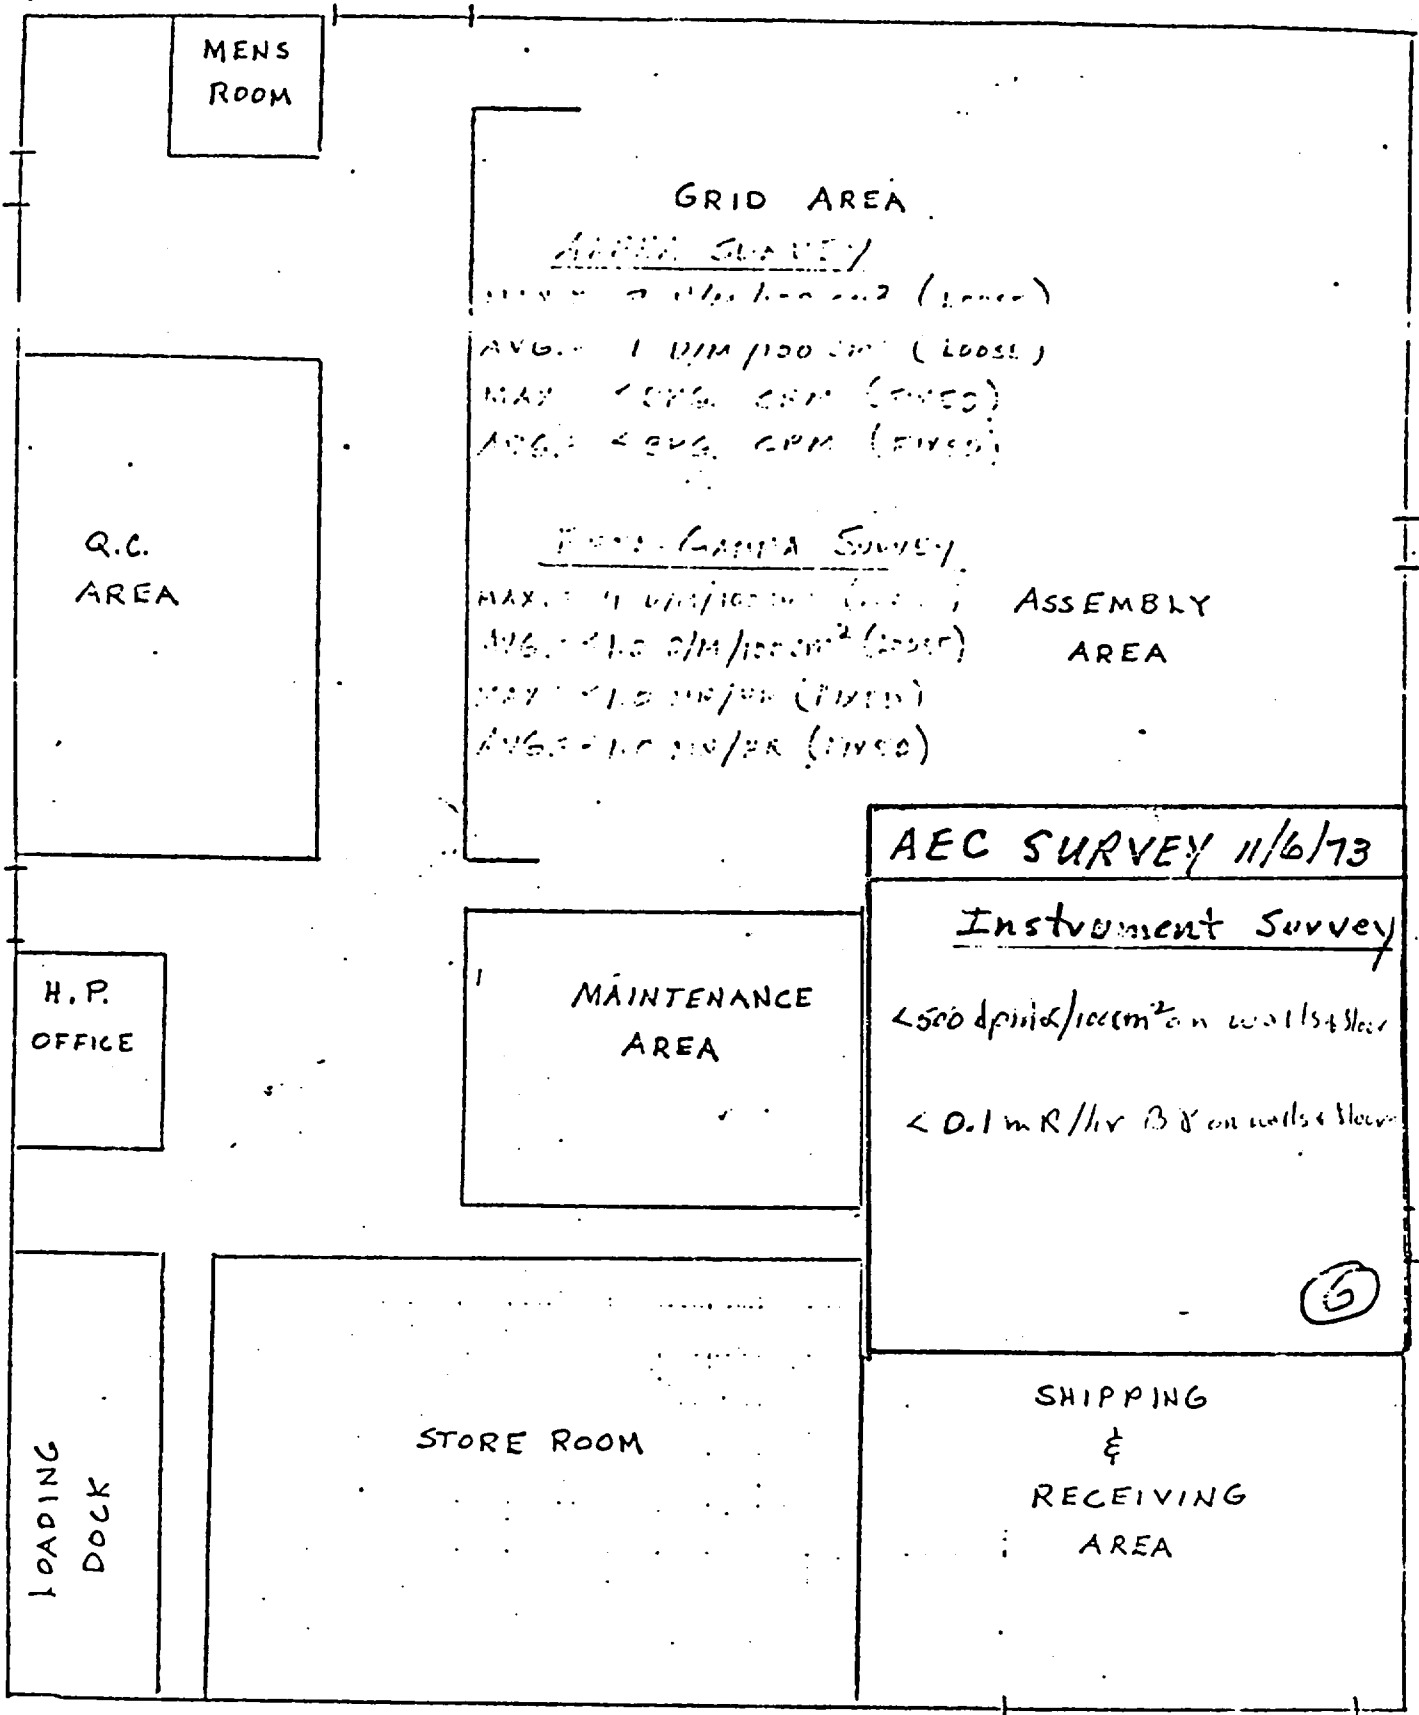 MENS
ROOM
GRID AREA
SURVEY
AVG. 1 D/M/100 (LOOSE)
MAX (FIXED)
AVG. < CPM (FIXED)
GAMMA SURVEY
MAX.
AVG. <1.0 D/M/100 cm² (LOOSE)
MAX <1.0 MR/HR (FIXED)
AVG. MR/HR (FIXED)
Q.C.
AREA
ASSEMBLY
AREA
AEC SURVEY 11/6/73
Instrument Survey
<500 dpm α/100cm² on walls &
< 0.1 mR/hr B γ on walls &
6
H.P.
OFFICE
MAINTENANCE
AREA
LOADING
DOCK
STORE ROOM
SHIPPING
&
RECEIVING
AREA